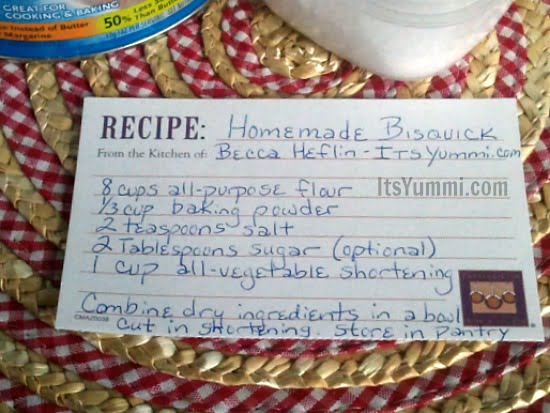 GREAT FOR
COOKING & BAKING
Instead of Butter
Margarine
50% Less S
Than Butt
RECIPE: Homemade Bisquick
From the Kitchen of: Becca Heflin - ItsYummi.com
ItsYummi.com
8 cups all-purpose flour
1/3 cup baking powder
2 teaspoons salt
2 Tablespoons sugar (optional)
1 cup all-vegetable shortening
Combine dry ingredients in a bowl
Cut in shortening. Store in pantry